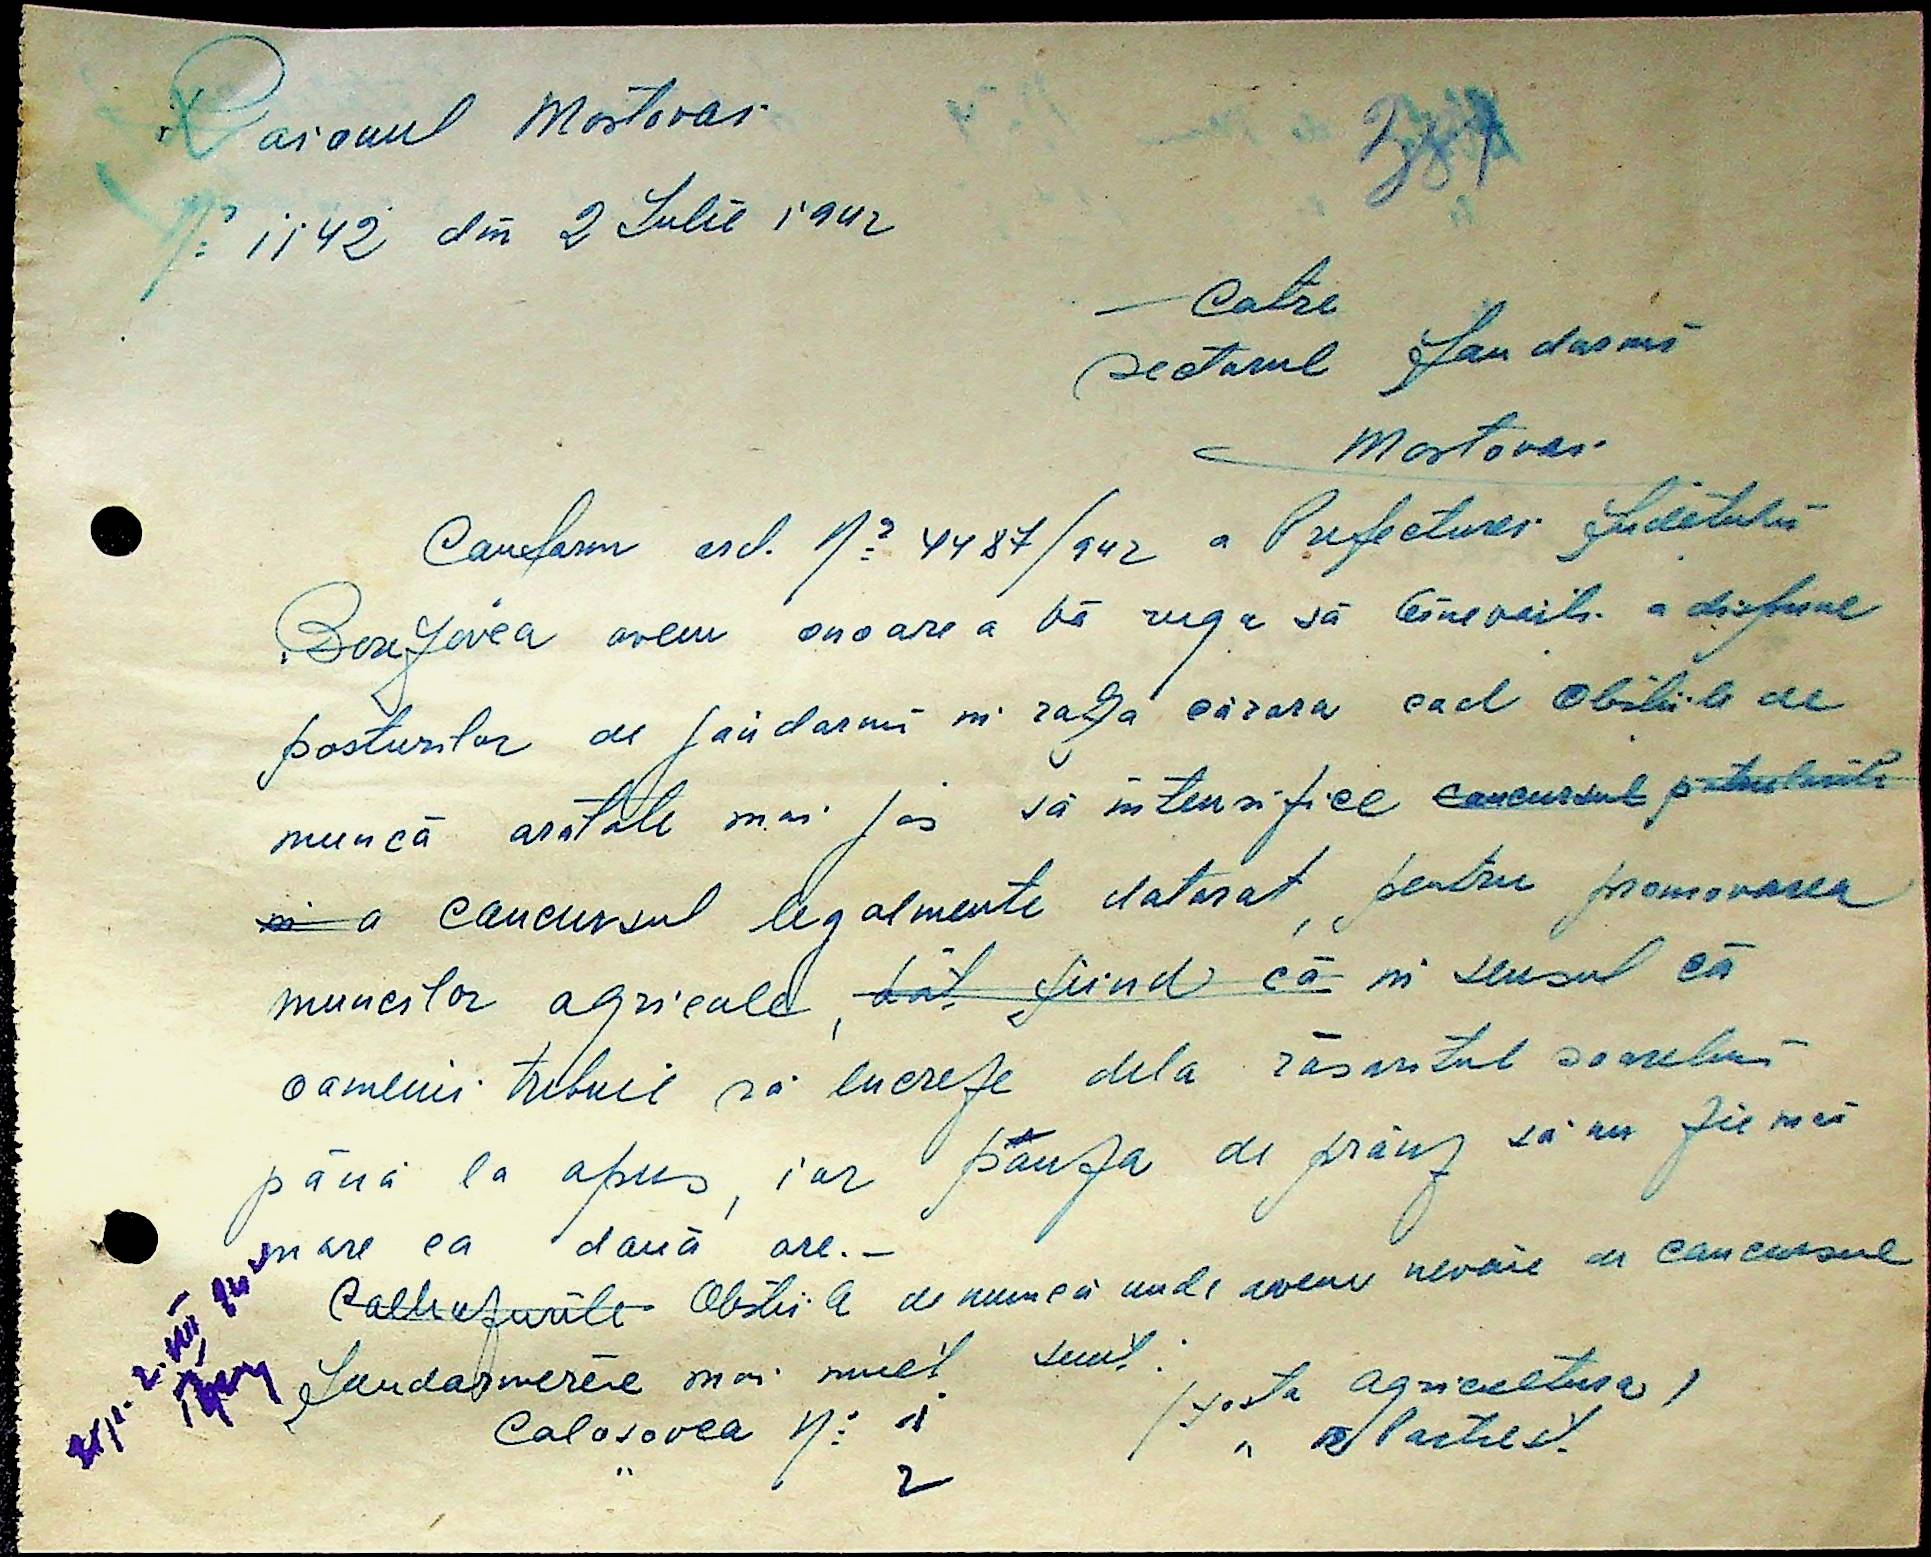 Raionul Mostovoi
Nº 1142 din 2 Iulie 1942
Catre
Sectorul Jandarmi
Mostovoi
Conform ord. Nº 4487/942 a Prefecturei Judetului
Berezovca avem onoare a vă ruga să binevoiti a dispune
posturilor de jandarmi in raza cărora cad Obstiile de
muncă arătate mai jos să intensifice concursul patrulările
si a concursul legalmente datorat, pentru promovarea
muncilor agricole, dat fiind că in sensul că
oamenii trebuie să lucreze dela răsăritul soarelui
până la apus, iar pauza de prânz să nu fie mai
mare ca două ore.-
Colhozurile Obstiile de muncă unde avem nevoie de concursul
Jandarmeriei mai mult sunt:
Colosovca Nº: 1 (fosta Agricultura)
" 2 " Partrest.